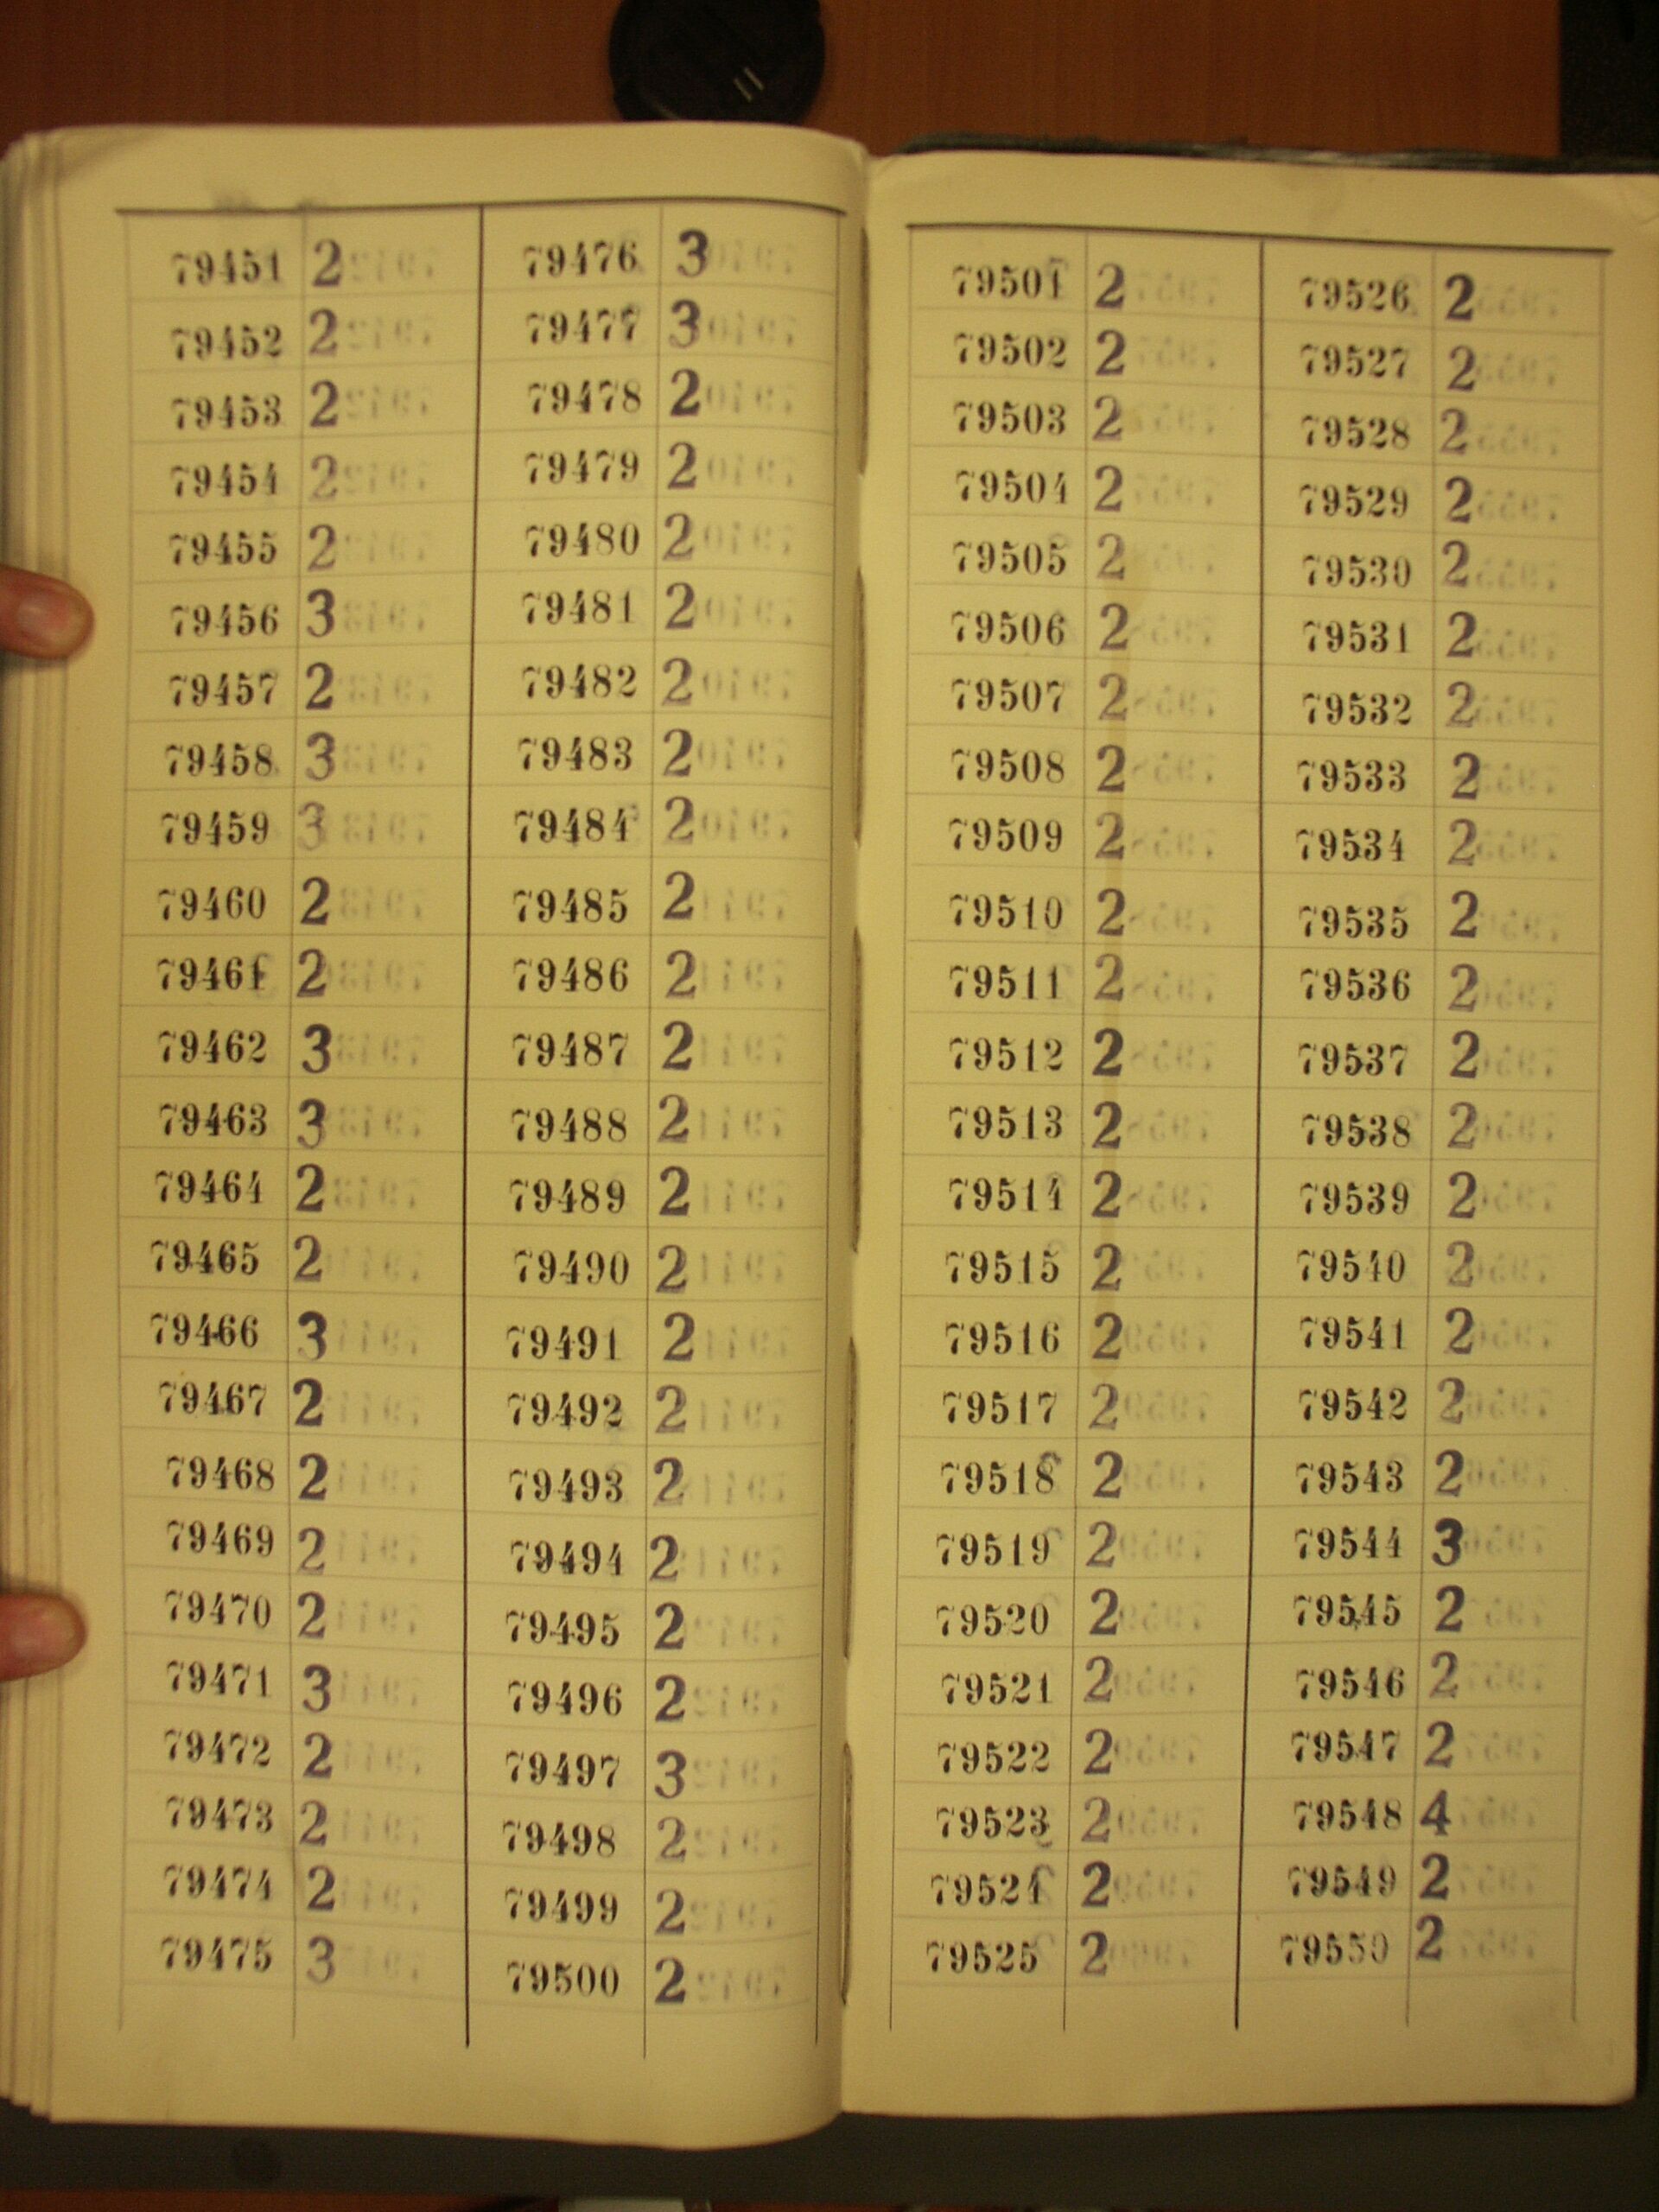 79451 2
79452 2
79453 2
79454 2
79455 2
79456 3
79457 2
79458 3
79459 3
79460 2
79461 2
79462 3
79463 3
79464 2
79465 2
79466 3
79467 2
79468 2
79469 2
79470 2
79471 3
79472 2
79473 2
79474 2
79475 3
79476 3
79477 3
79478 2
79479 2
79480 2
79481 2
79482 2
79483 2
79484 2
79485 2
79486 2
79487 2
79488 2
79489 2
79490 2
79491 2
79492 2
79493 2
79494 2
79495 2
79496 2
79497 3
79498 2
79499 2
79500 2
79501 2
79502 2
79503 2
79504 2
79505 2
79506 2
79507 2
79508 2
79509 2
79510 2
79511 2
79512 2
79513 2
79514 2
79515 2
79516 2
79517 2
79518 2
79519 2
79520 2
79521 2
79522 2
79523 2
79524 2
79525 2
79526 2
79527 2
79528 2
79529 2
79530 2
79531 2
79532 2
79533 2
79534 2
79535 2
79536 2
79537 2
79538 2
79539 2
79540 2
79541 2
79542 2
79543 2
79544 3
79545 2
79546 2
79547 2
79548 4
79549 2
79550 2